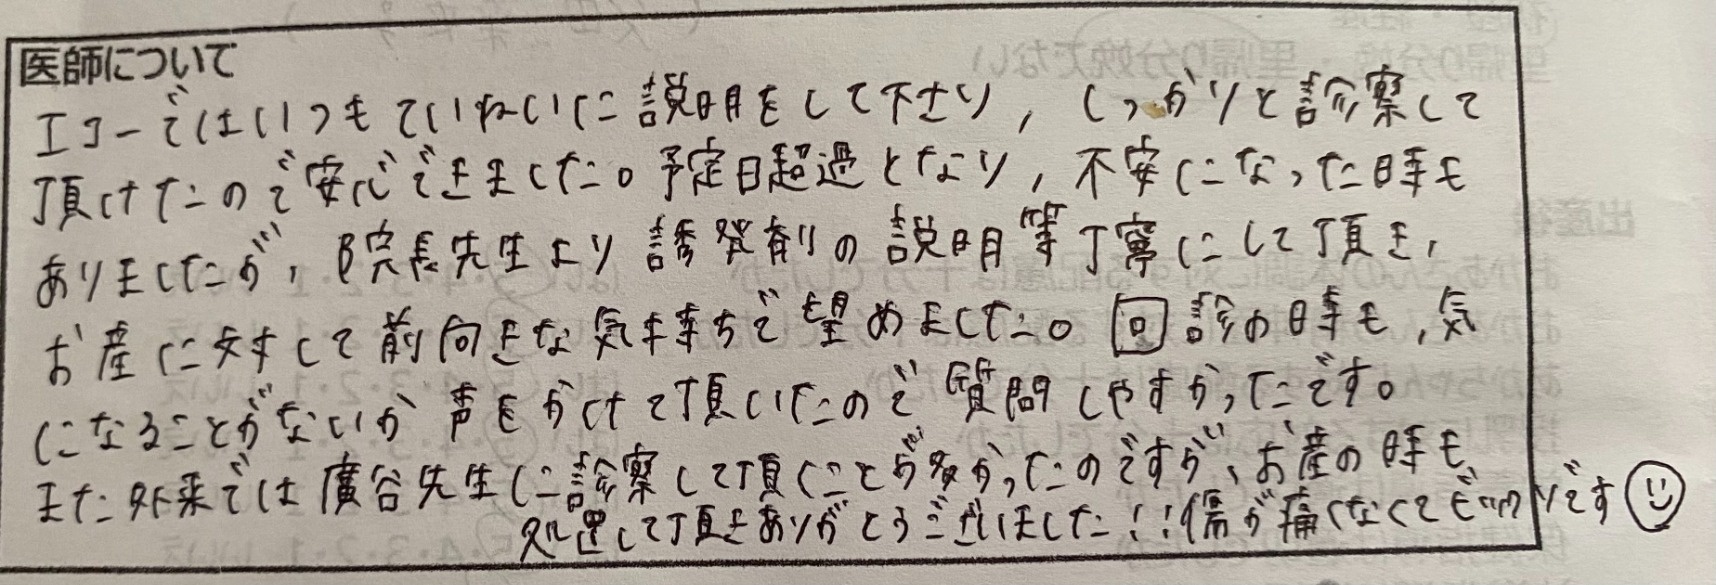 医師について
エコーではいつもていねいに説明をして下さり,しっかりと診察して
頂けたので安心できました。予定日超過となり,不安になった時も
ありましたが、院長先生より誘発剤の説明等丁寧にして頂き,
お産に対して前向きな気持ちで望めました。回診の時も,気
になることがないか声をかけて頂いたので質問しやすかったです。
また外来では廣谷先生に診察して頂くことが多かったのですが、お産の時も
処置して頂きありがとうございました!!傷が痛くなくてビックリです